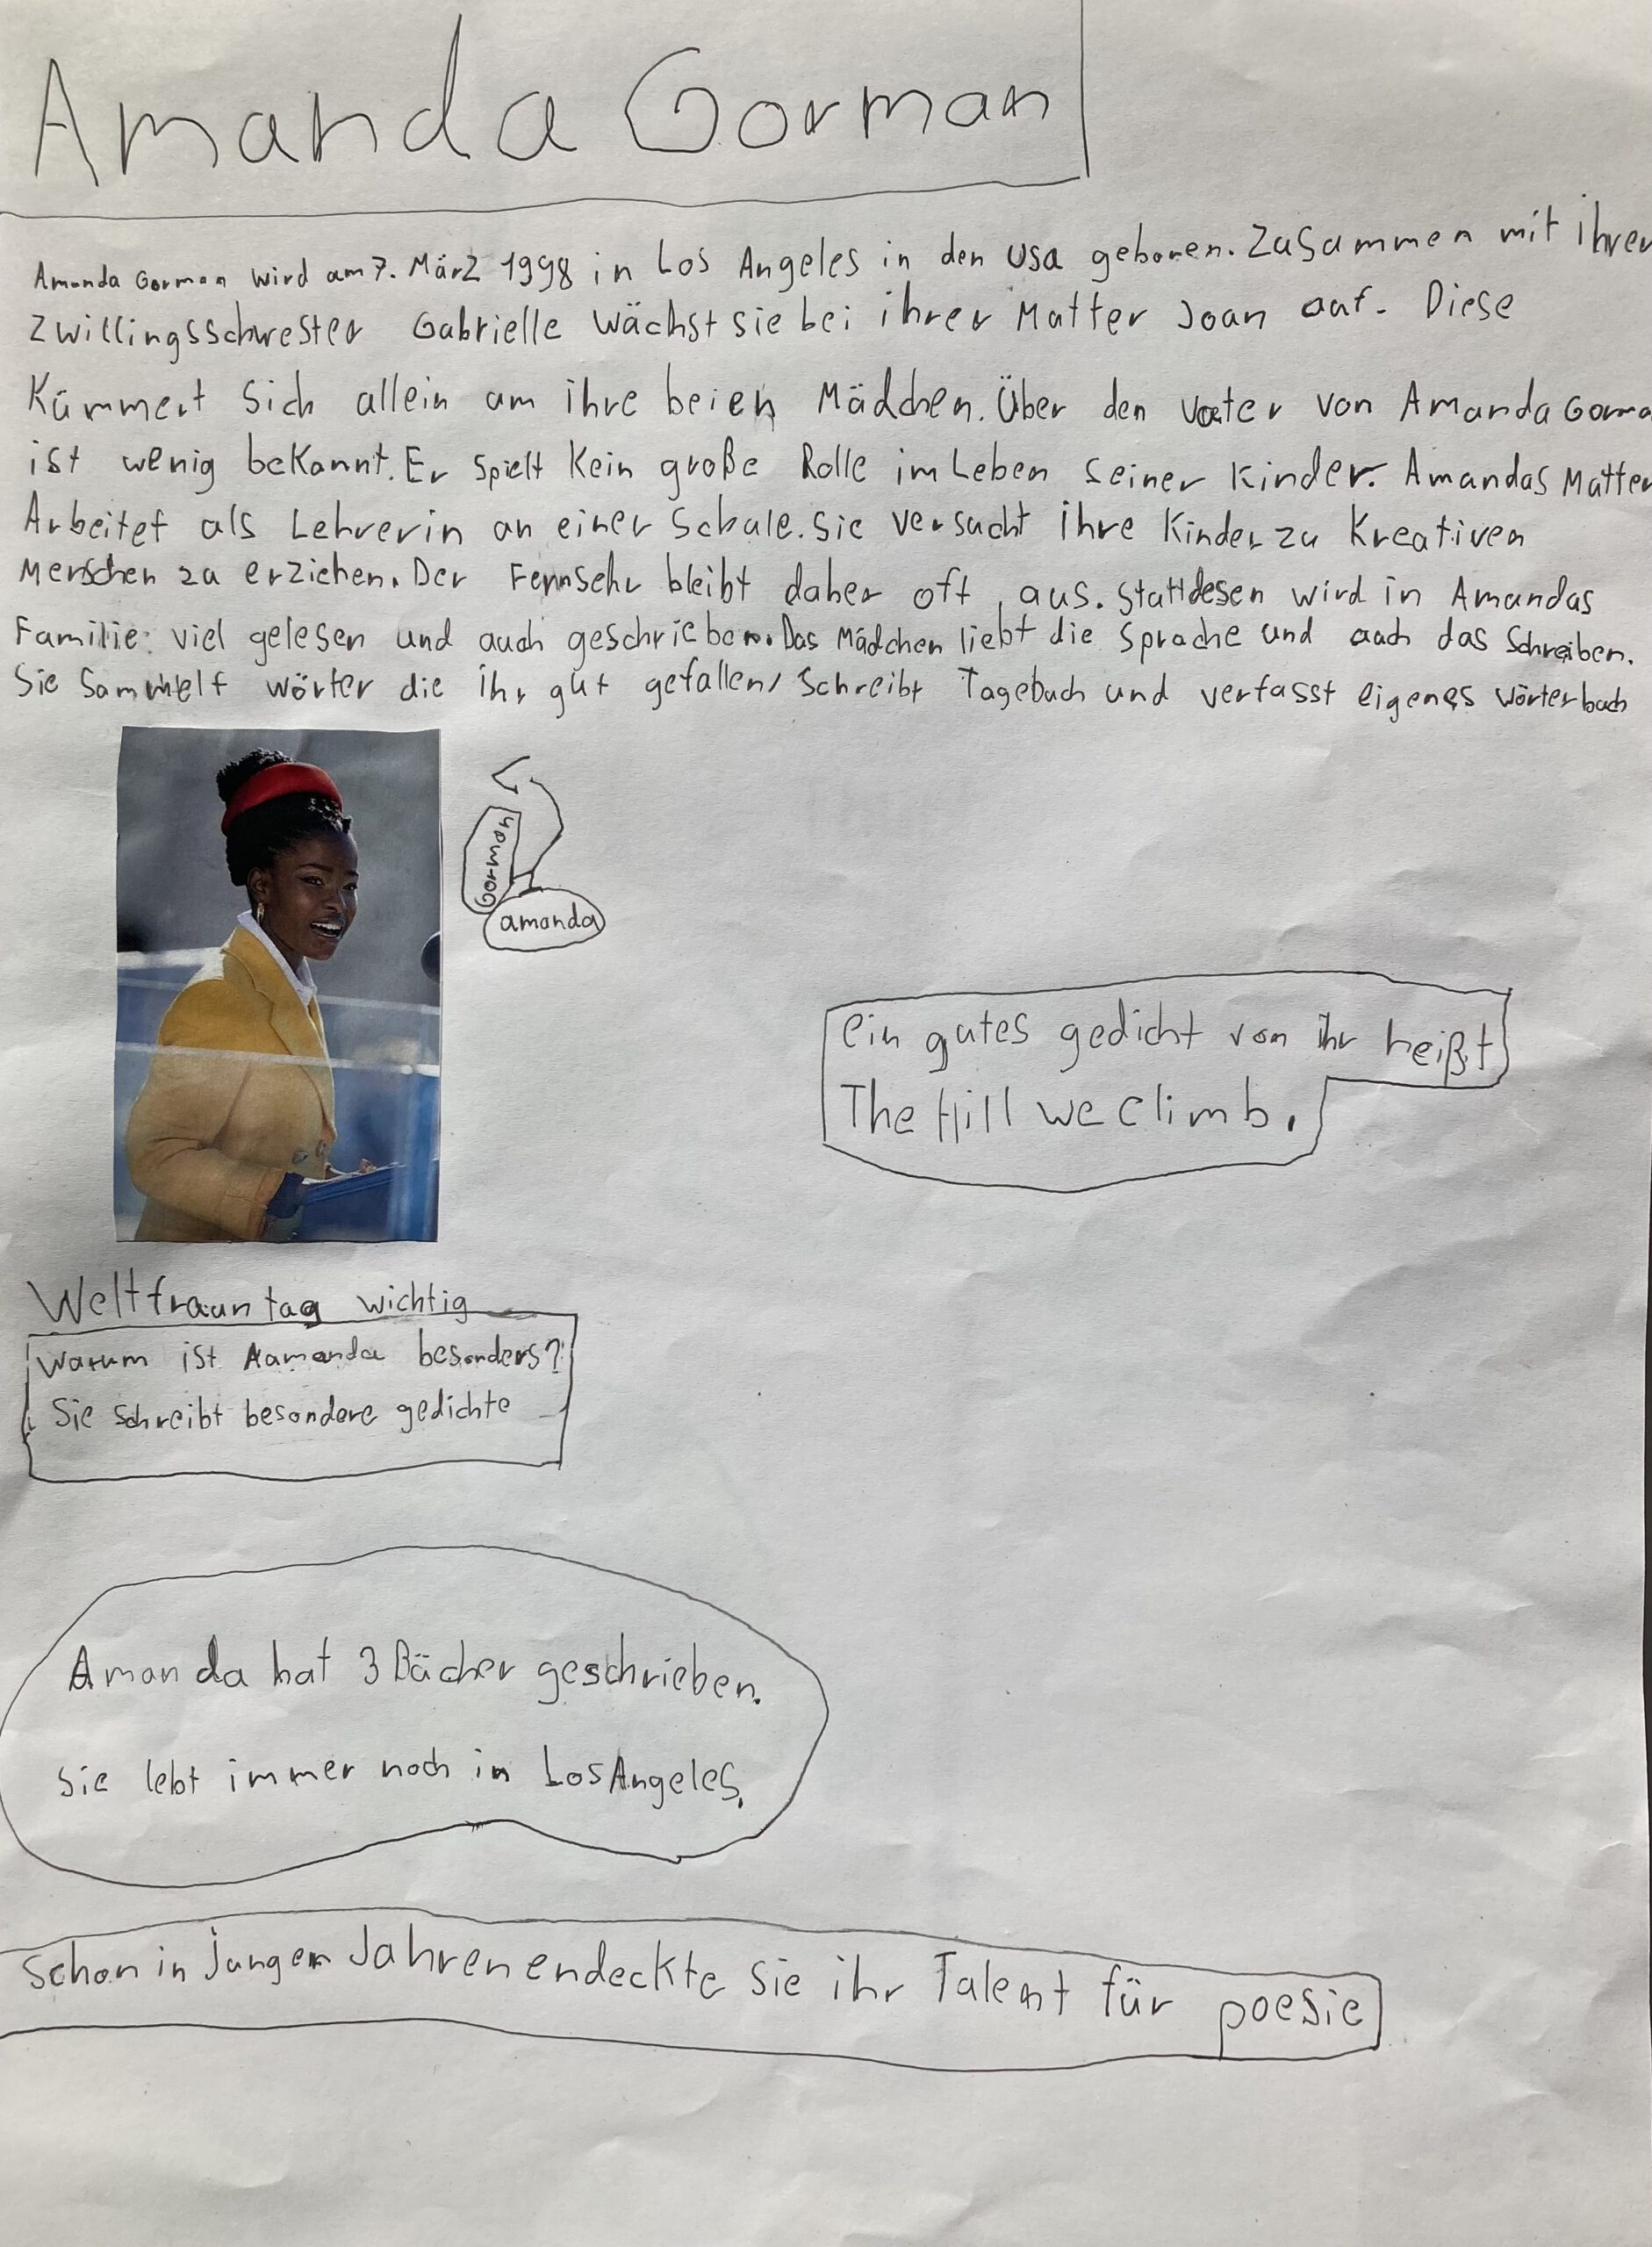 Amanda Gorman
Amanda Gorman wird am 7. März 1998 in Los Angeles in den Usa geboren. Zusammen mit ihrer
Zwillingsschwester Gabrielle wächst sie bei ihrer Mutter Joan auf. Diese
Kümmert sich allein um ihre beien Mädchen. Über den Vater von Amanda Gorma
ist wenig bekannt. Er spielt kein große Rolle im Leben seiner Kinder. Amandas Mutter
Arbeitet als Lehrerin an einer Schule. Sie versucht ihre Kinder zu Kreativen
Menschen zu erziehen. Der Fernsehr bleibt daher oft aus. Stattdesen wird in Amandas
Familie viel gelesen und auch geschrieben. Das Mädchen liebt die Sprache und auch das Schreiben.
Sie Sammelt wörter die ihr gut gefallen, schreibt Tagebuch und verfasst eigenes Wörterbuch
Gorman
amanda
ein gutes gedicht von ihr heißt
The Hill we Climb.
Weltfrauntag wichtig
Warum ist Aamanda besonders?
Sie schreibt besondere gedichte
Amanda hat 3 Bücher geschrieben.
Sie lebt immer noch in Los Angeles.
Schon in jungen Jahren endeckte sie ihr Talent für poesie